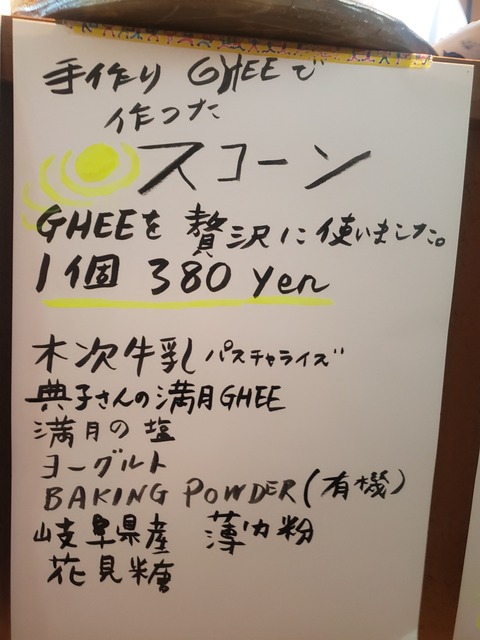 手作り GHEEで
作った
スコーン
GHEEを贅沢に使いました。
1個 380 yen
木次牛乳パスチャライズ
典子さんの満月GHEE
満月の塩
ヨーグルト
BAKING POWDER(有機)
岐阜県産 薄力粉
花見糖